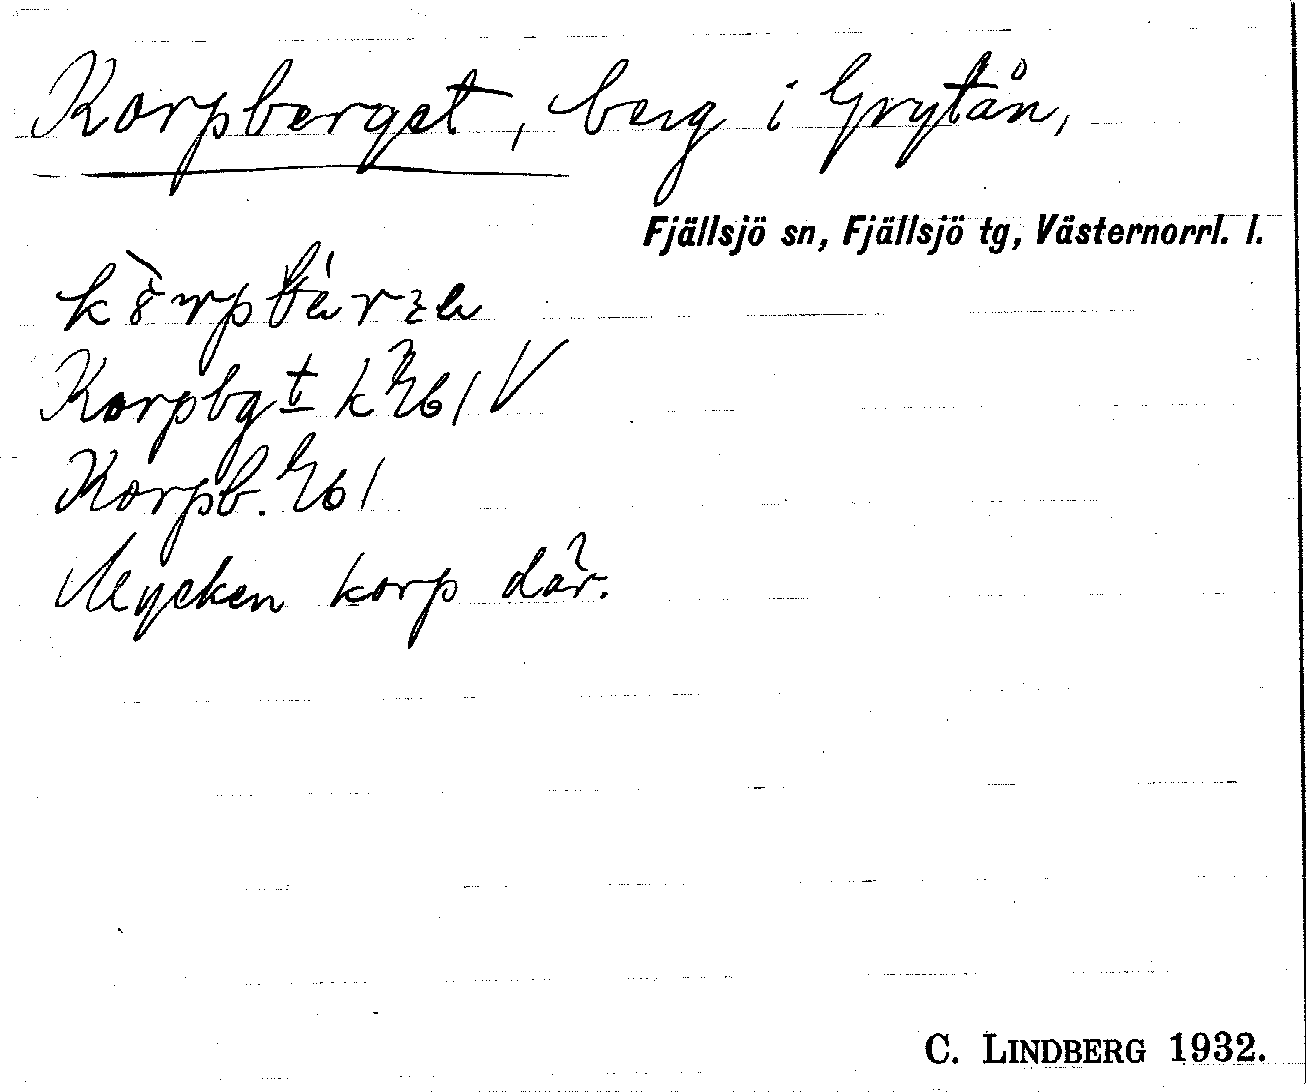 Korpberget, berg i Grytån,
Fjällsjö sn, Fjällsjö tg, Västernorrl. l.
Korpbgt k 61 V
Korpb. 61
Mycken korp där.
C. LINDBERG 1932.